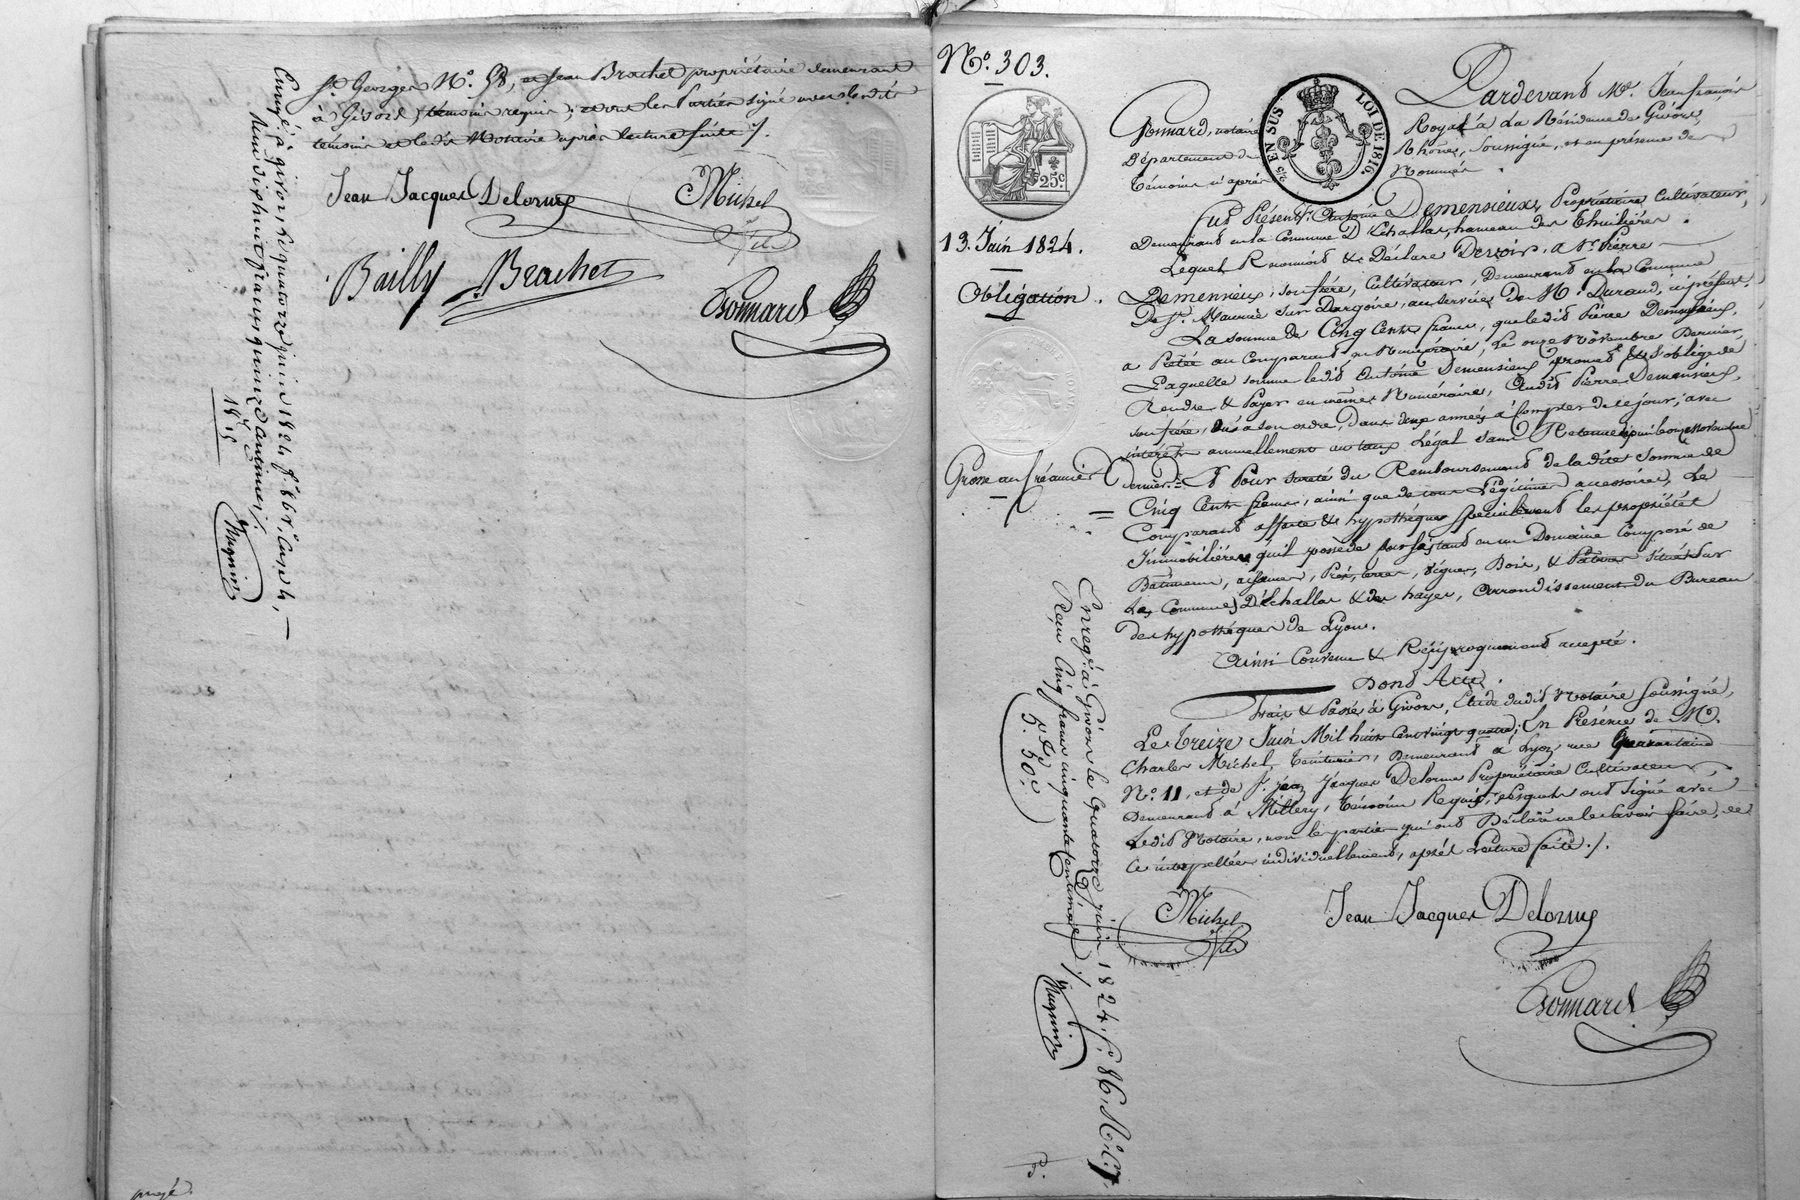 St. Georges No. 58, et Jean Brachet propriétaire demeurant
à Givors, témoins requis; et ont les Parties signé avec lesdits
témoins et ledit Notaire après lecture faite ./.
Jean Jacques Delorme
Michel
fils
Bailly
Brachet
Bonnard
Enregé. à givors le quatorze juin 1824
Reçu dix huit francs quinze centimes ./.
18 f. 15
Magnin
No. 303.
25c.
EN SUS
LOI DE 1816
13. Juin 1824.
Obligation.
Grosse au Créancier
Pardevant Me. Jean françois
Bonnard, notaire Royal à La Résidence de Givors,
Département du Rhône, Soussigné, et en présence des
témoins ci après Nommés.
fut Présent Sr. Antoine Demensieux, Propriétaire Cultivateur,
Demeurant en la Commune D'Echallas, hameau des Thuilières.
Lequel Reconnoit & Déclare Devoir, a Sr. Pierre
Demensieux, son frère, Cultivateur, Demeurant en la Commune
De St. Maurice sur Dargoire, au service de Mr. Durand, ici présent.
La somme de Cinq Cents francs, que ledit Pierre Demensieux,
a Prêtée au Comparant en Numéraire, Le onze Novembre Dernier,
Laquelle somme ledit Antoine Demensieux promet & s'oblige de
Rendre & Payer en même Numéraire, Audit Pierre Demensieux,
son frère, ou à son ordre, dans deux années à Compter de ce jour, avec
intérêts annuellement au taux Légal sans Retenue depuis le onze Novembre
dernier. = Et Pour sureté du Remboursement de la dite somme de
Cinq Cents francs, ainsi que de tous Légitimes accessoires, Le
Comparant affecte & hypothéque spécialement les propriétés
Immobilières qu'il possède consistant en un Domaine Composé de
Bâtiments, aisances, Prés, terres, vignes, Bois, & Patures Situés sur
Les Communes D'Echallas & des hayes, arrondissement du Bureau
des hypothéques de Lyon.
Ainsi Convenu & Réciproquement accepté.
Dont Acte.
Fait & Passé à Givors, Etude dudit Notaire Soussigné,
Le treize Juin Mil huit Cent vingt quatre; En Présence de Mr.
Charles Michel, teinturier, Demeurant à Lyon, rue
No. 11, et de Sr. Jean Jacques Delorme Propriétaire Cultivateur
Demeurant à Millery, témoins Requis, lesquels ont signé avec
Ledit Notaire, non les parties qui ont Déclaré ne le savoir faire, de
Ce interpellées individuellement, après Lecture faite ./.
Michel
fils
Jean Jacques Delorme
Bonnard
Enregé. à Givors le Quatorze juin 1824. f. 86. Ro. C. 7,
Reçu Cinq francs cinquante centimes ./.
5 f. 50 c.
Magnin